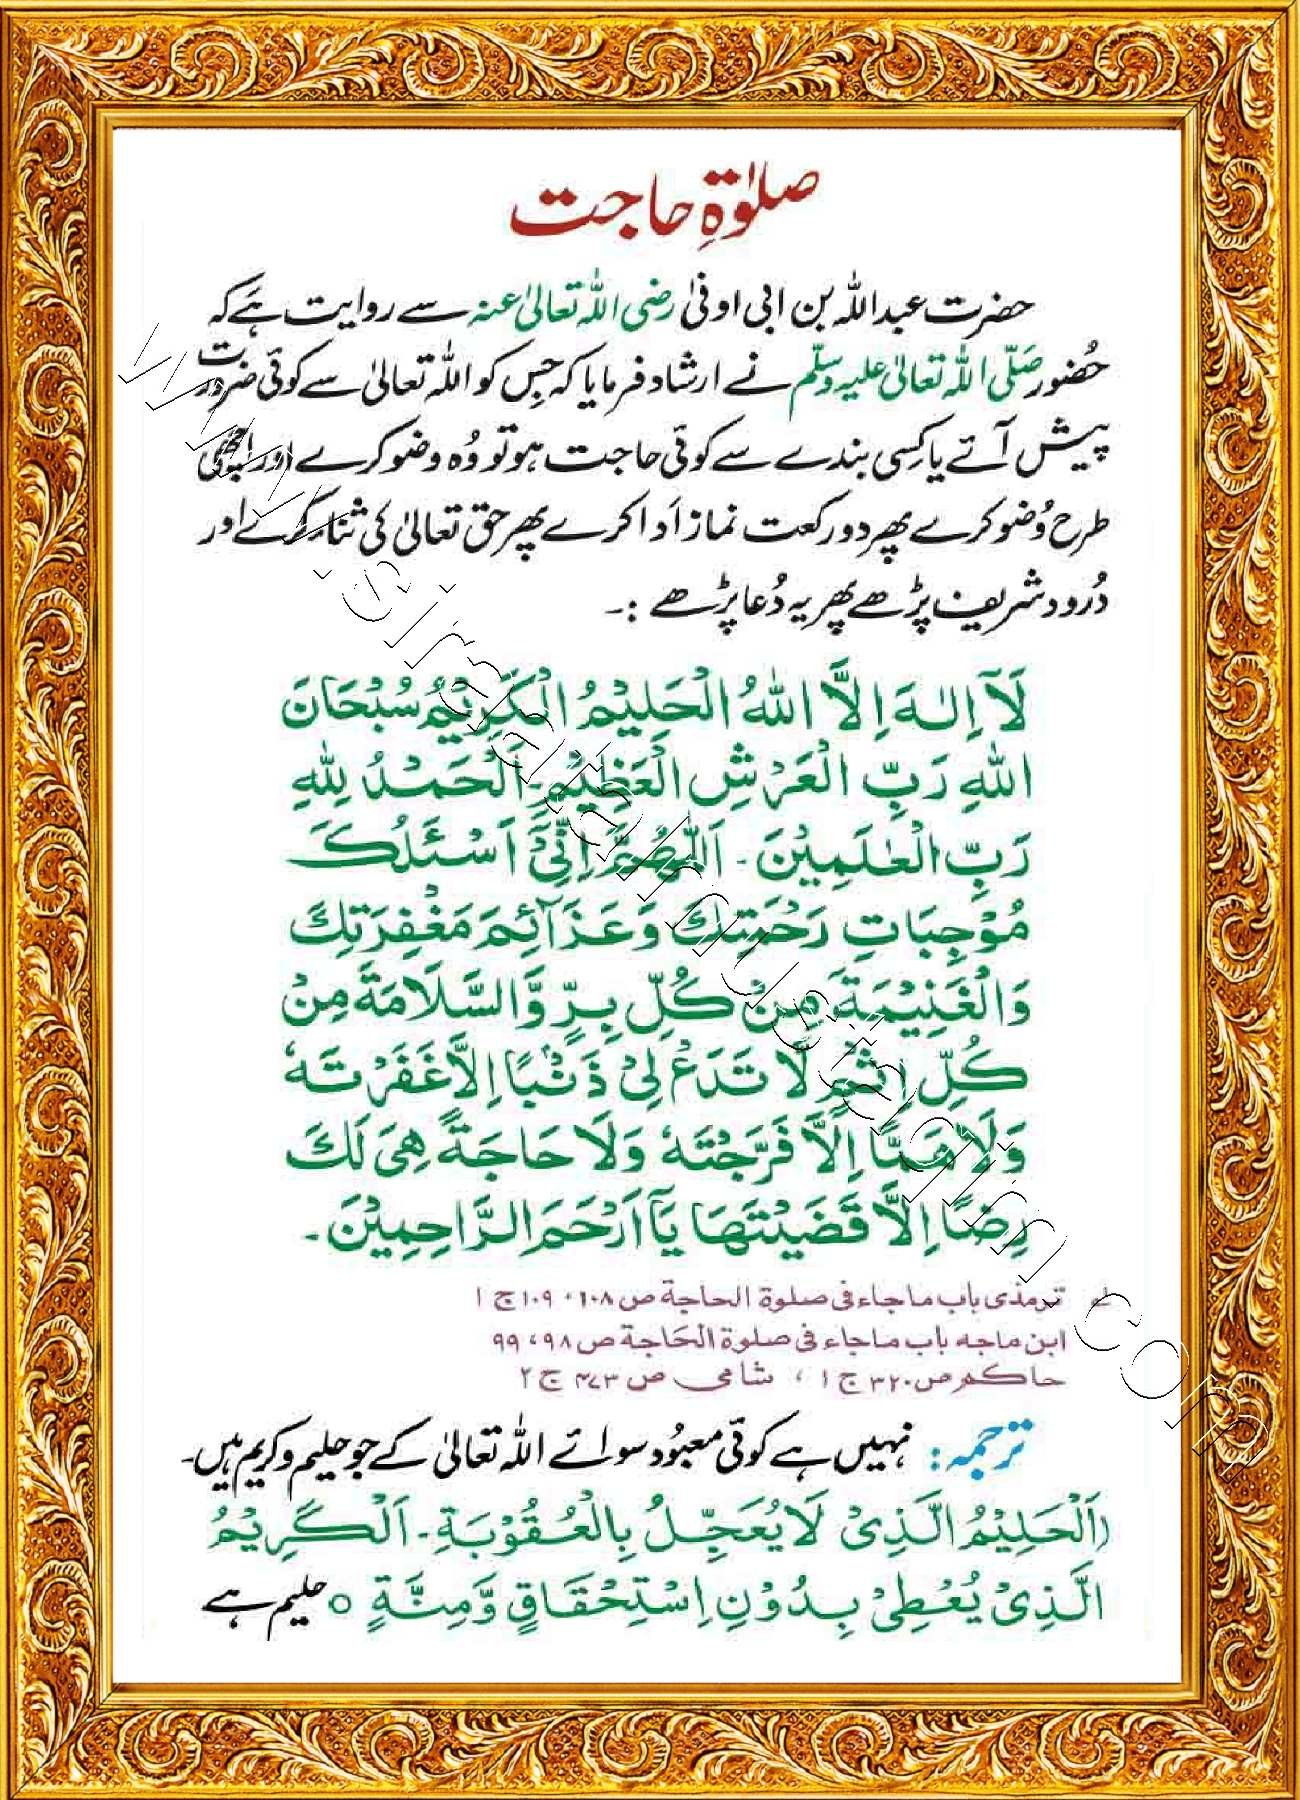 صلوٰۃِ حاجت
حضرت عبداللہ بن ابی اوفیٰ رضی اللہ تعالیٰ عنہ سے روایت ہے کہ
حُضور صَلَّی اللہ تعالیٰ علیہ وسلّم نے ارشاد فرمایا کہ جِس کو اللہ تعالیٰ سے کوئی ضرورت
پیش آئے یا کِسی بندے سے کوئی حاجت ہو تو وُہ وضو کرے اور اچھی
طرح وُضو کرے پھر دو رکعت نماز اَدا کرے پھر حق تعالیٰ کی ثناء کرے اور
دُرود شریف پڑھے پھر یہ دُعا پڑھے :۔
لَآ اِلٰهَ اِلَّا اللهُ الْحَلِيْمُ الْكَرِيْمُ سُبْحَانَ
اللهِ رَبِّ الْعَرْشِ الْعَظِيْمِ۔ اَلْحَمْدُ لِلّٰهِ
رَبِّ الْعٰلَمِيْنَ ۔ اَللّٰهُمَّ اِنِّيْٓ اَسْئَلُكَ
مُوْجِبَاتِ رَحْمَتِكَ وَعَزَآئِمَ مَغْفِرَتِكَ
وَالْغَنِيْمَةَ مِنْ كُلِّ بِرٍّ وَّالسَّلَامَةَ مِنْ
كُلِّ اِثْمٍ لَّا تَدَعْ لِيْ ذَنْۢبًا اِلَّا غَفَرْتَهٗ
وَلَا هَمًّا اِلَّا فَرَّجْتَهٗ وَلَا حَاجَةً هِيَ لَكَ
رِضًا اِلَّا قَضَيْتَهَا يَآ اَرْحَمَ الرَّاحِمِيْنَ ۔
لہ ترمذی باب ماجاء فی صلوة الحاجة ص ۱۰۸، ۱۰۹ ج ۱
ابن ماجه باب ماجاء فی صلوة الحَاجة ص ۹۸، ۹۹
حاکم ص ۳۲۰ ج ۱ ، شامی ص ۴۷۳ ج ۲
ترجمہ: نہیں ہے کوئی معبُود سوائے اللہ تعالیٰ کے جو حلیم و کریم ہیں۔
(اَلْحَلِيْمُ الَّذِيْ لَا يُعَجِّلُ بِالْعُقُوْبَةِ۔ اَلْكَرِيْمُ
الَّذِيْ يُعْطِيْ بِدُوْنِ اِسْتِحْقَاقٍ وَّمِنَّةٍ ○ حلیم ہے
www.siratalmustaqim.com